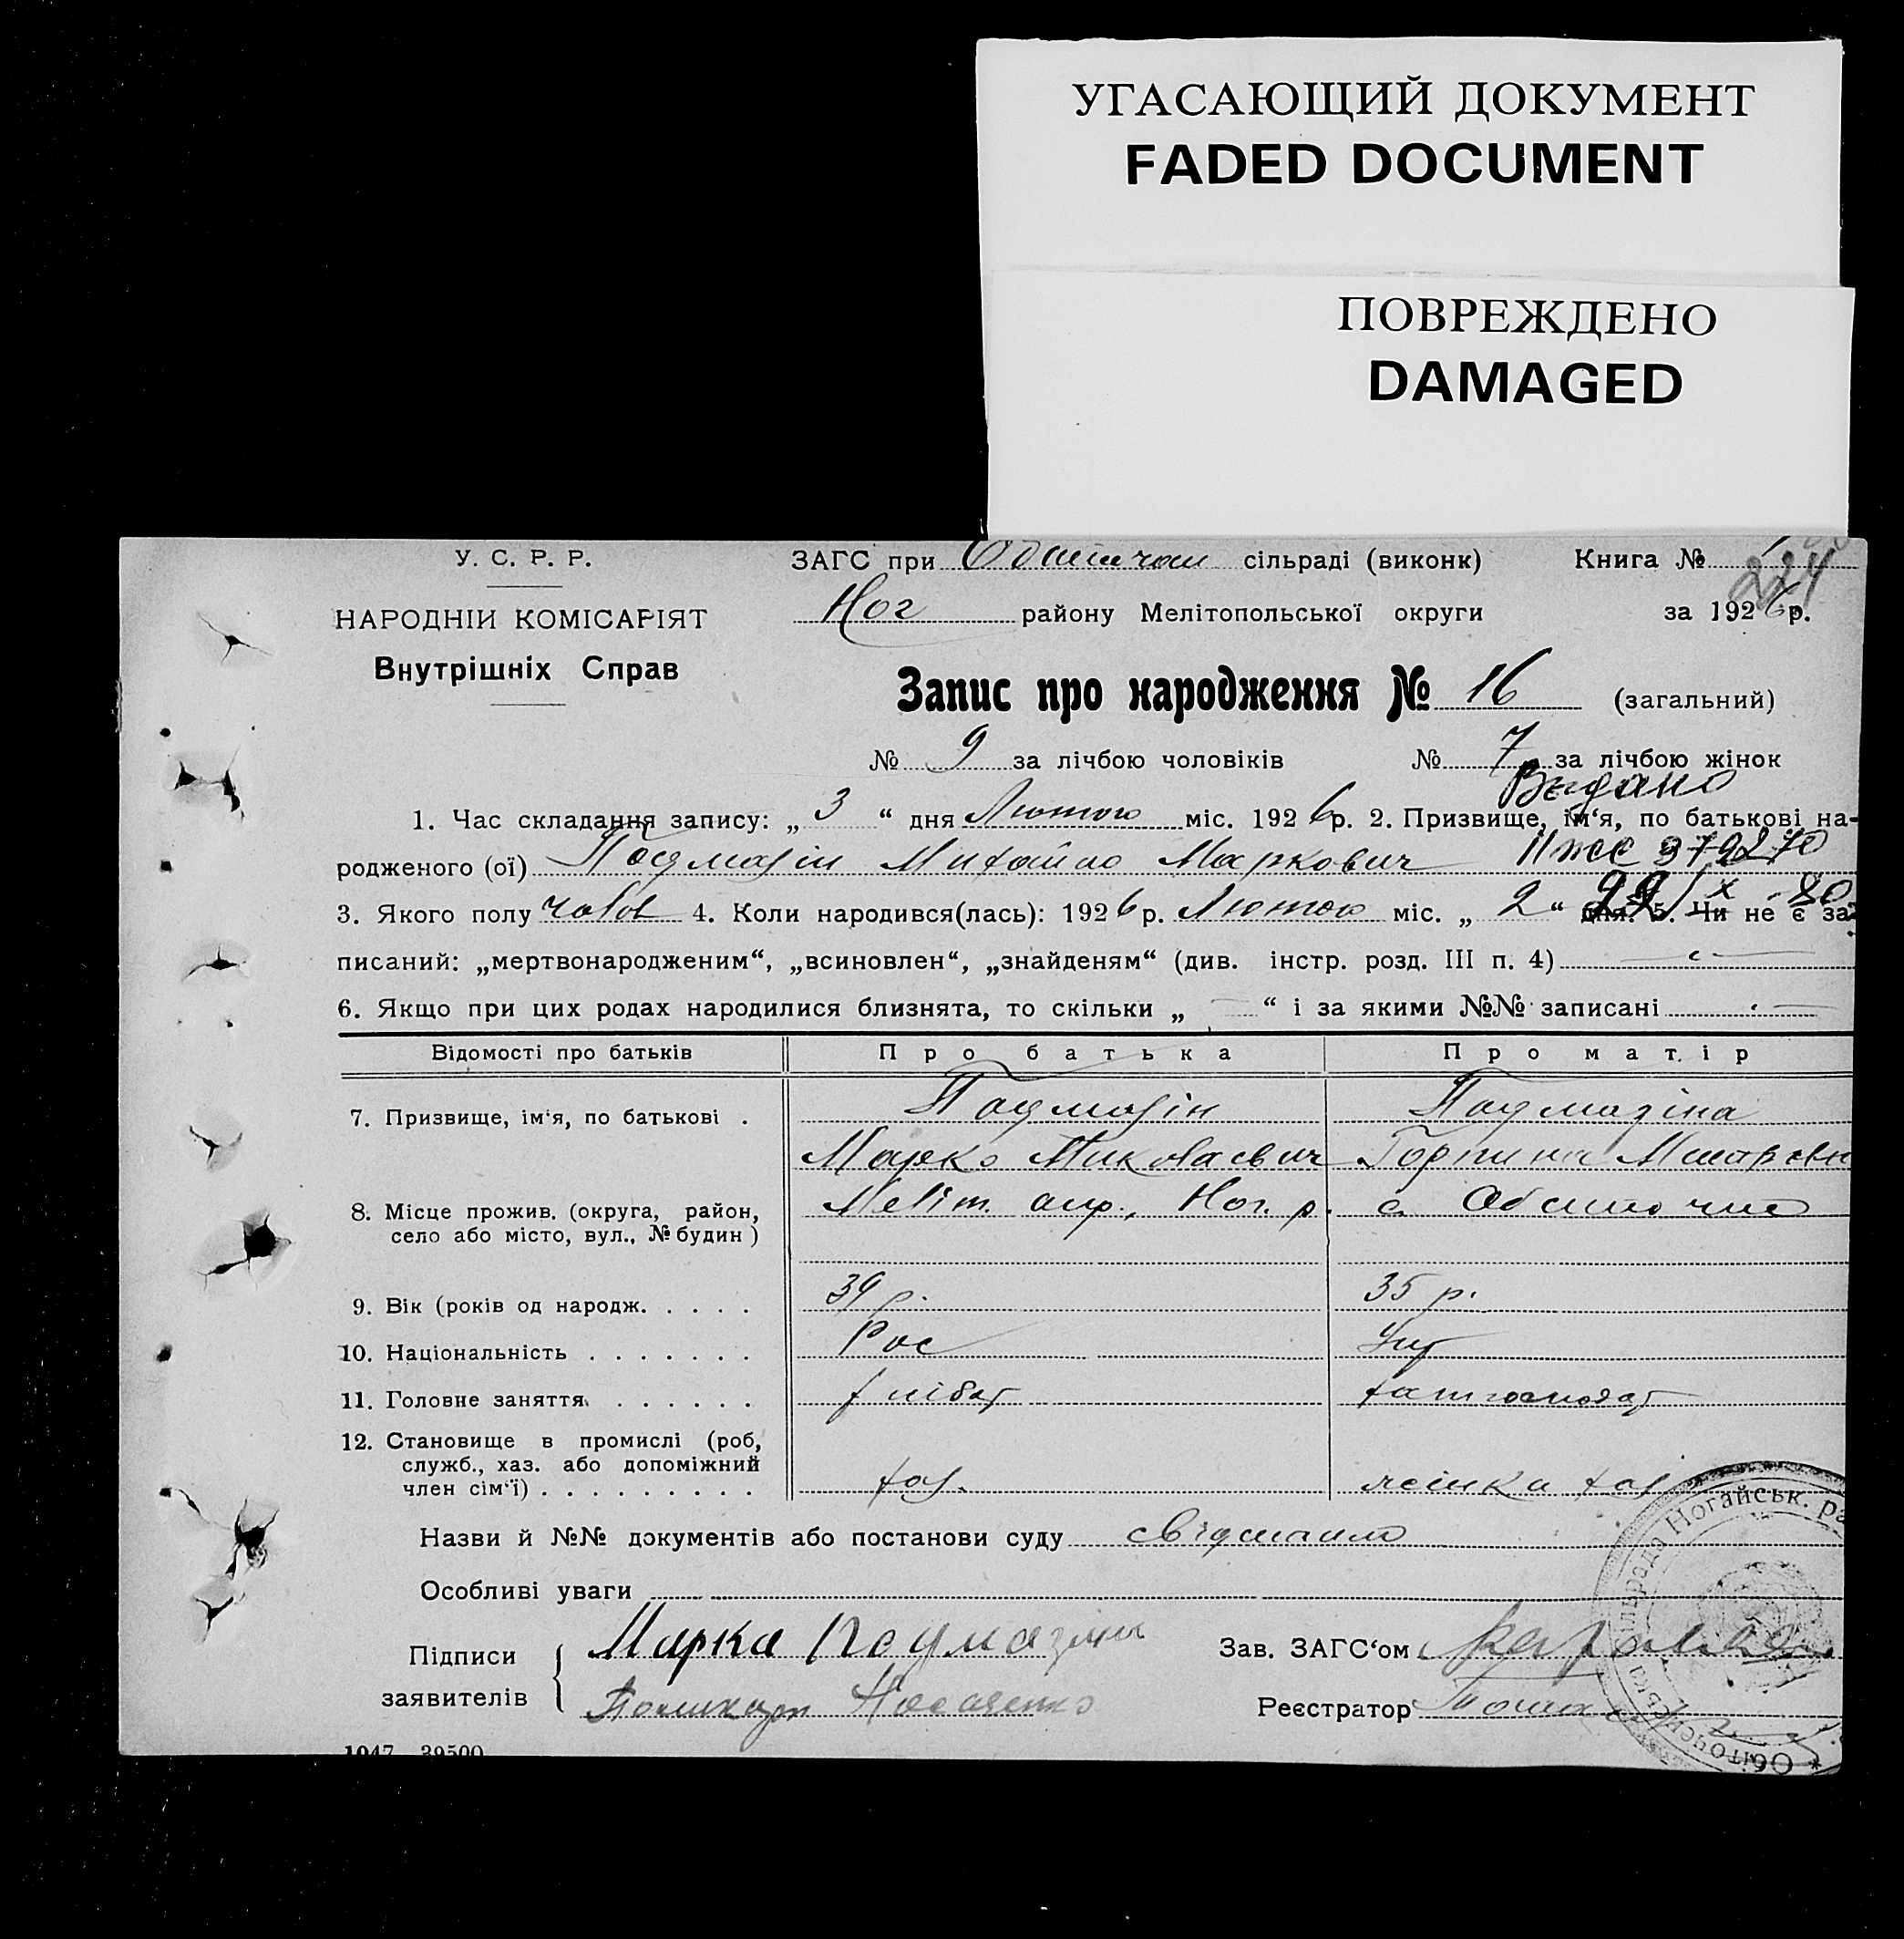 УГАСАЮЩИЙ ДОКУМЕНТ
FADED DOCUMENT
ПОВРЕЖДЕНО
DAMAGED
У. С. Р. Р.
ЗАГС при сільраді (виконк) Книга № 1
224
НАРОДНІЙ КОМІСАРІЯТ
Ног району Мелітопольської округи за 1926 р.
Внутрішніх Справ
Запис про народження № 16 (загальний)
№ 9 за лічбою чоловіків № 7 за лічбою жінок
Видано
1. Час складання запису: „ 3 “ дня Лютого міс. 1926 р. 2. Призвище, ім‘я, по батькові на-
родженого (ої) Подмазін Михайло Маркович
3. Якого полу чолов 4. Коли народився(лась): 1926 р. Лютого міс. „ 2 “ дня. 5. Чи не є за-
писаний: „мертвонародженим“, „всиновлен“, „знайденям“ (див. інстр. розд. III п. 4)
6. Якщо при цих родах народилися близнята, то скільки „ — “ і за якими №№ записані —
Відомості про батьків Про батька Про матір
7. Призвище, ім‘я, по батькові . Подмазін Подмазіна
Марко Миколаевич Горпина
8. Місце прожив. (округа, район, Меліт. окр., Ног. р. с. Обиточне
село або місто, вул., № будин )
9. Вік (років од народж. . . . . 39 р. 35 р.
10. Національність . . . . . . . Рос Укр
11. Головне заняття . . . . . . хлібор
12. Становище в промислі (роб,
служб., хаз. або допоміжний
член сім‘ї) . . . . . . . . . хаз. жінка хаз
Назви й №№ документів або постанови суду
Особливі уваги
Підписи Марко Подмазин Зав. ЗАГС‘ом
заявителів Поликарп Носаченко Реєстратор
1047 39500
Ногайськ. ра